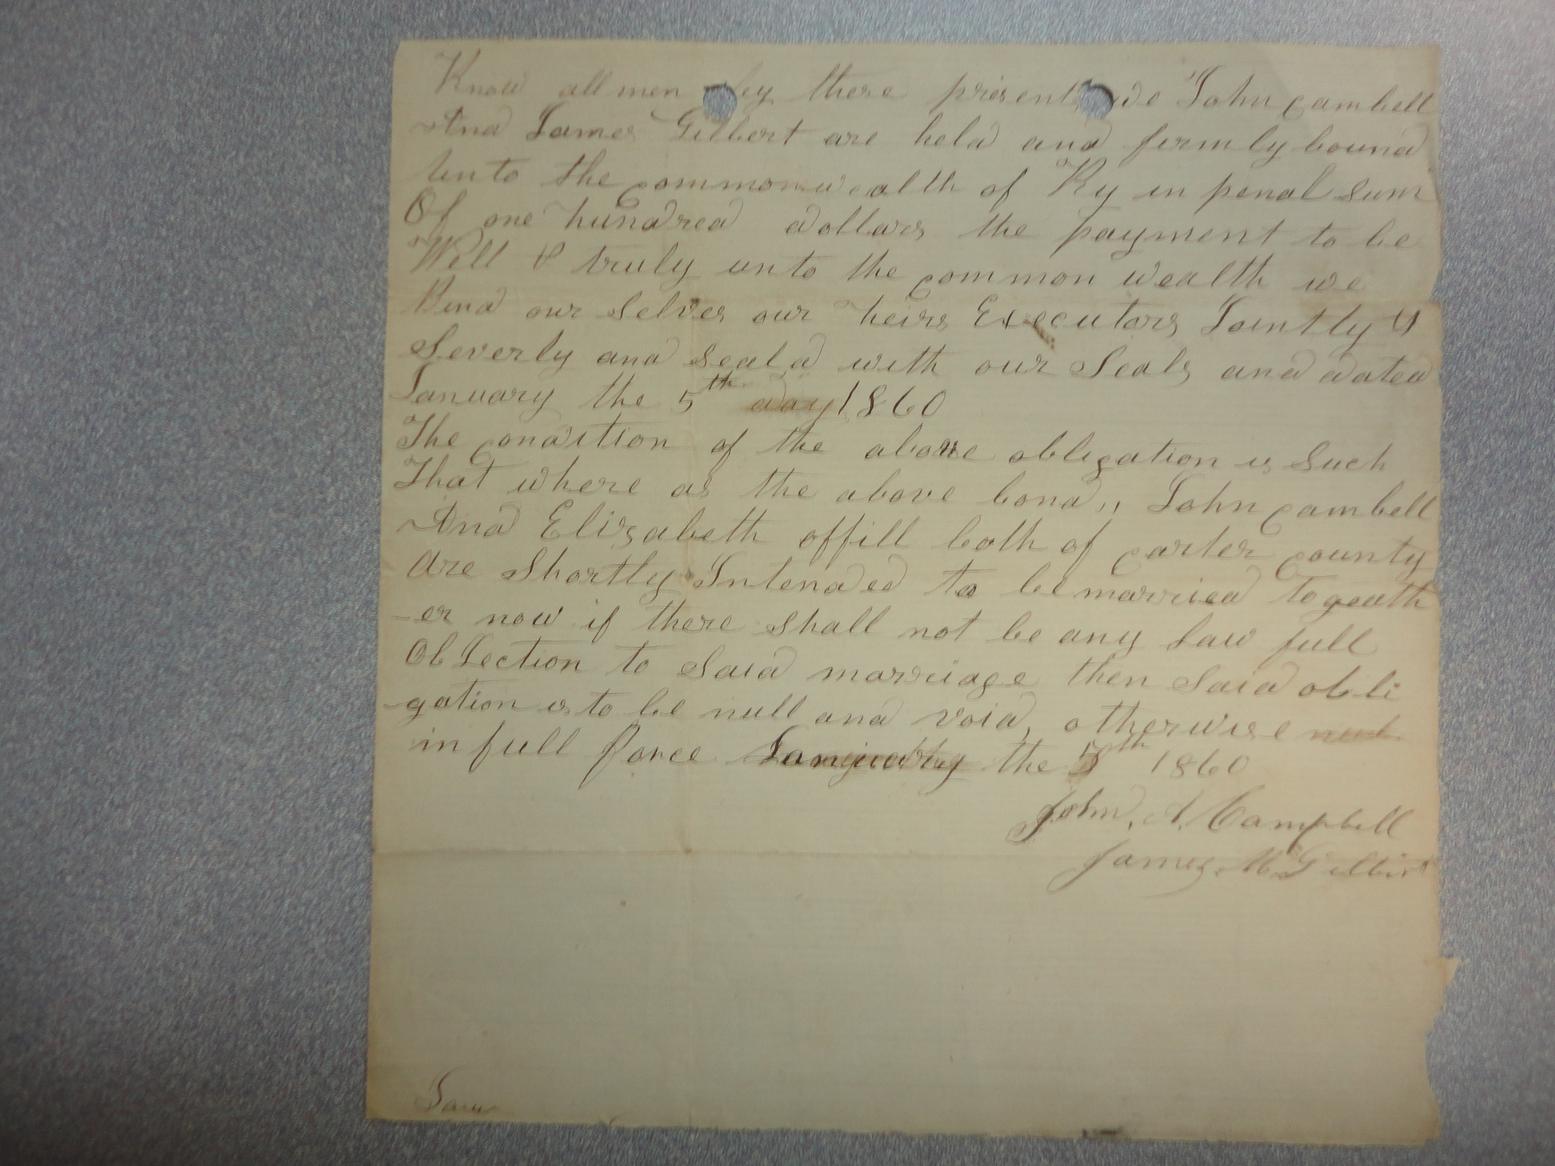 Know all men by these presents we John cambell
And James Gilbert are held and firmly bound
unto the commonwealth of Ky in penal sum
Of one hundred dollars the payment to be
Well & truly unto the common wealth we
Bind our selves our heirs Executors Jointly &
Severly and seald with our Seals and dated
January the 5th day 1860
The condition of the above obligation is Such
That where as the above bond,, John cambell
And Elizabeth offill both of carter county
Are Shortly Intended to be married togeath
-er now if there shall not be any law full
ObJection to Said marriage then Said obli
-gation is to be null and void, otherwise
in full force the 5th 1860
John, A, Campbell
James, M Gilbirt